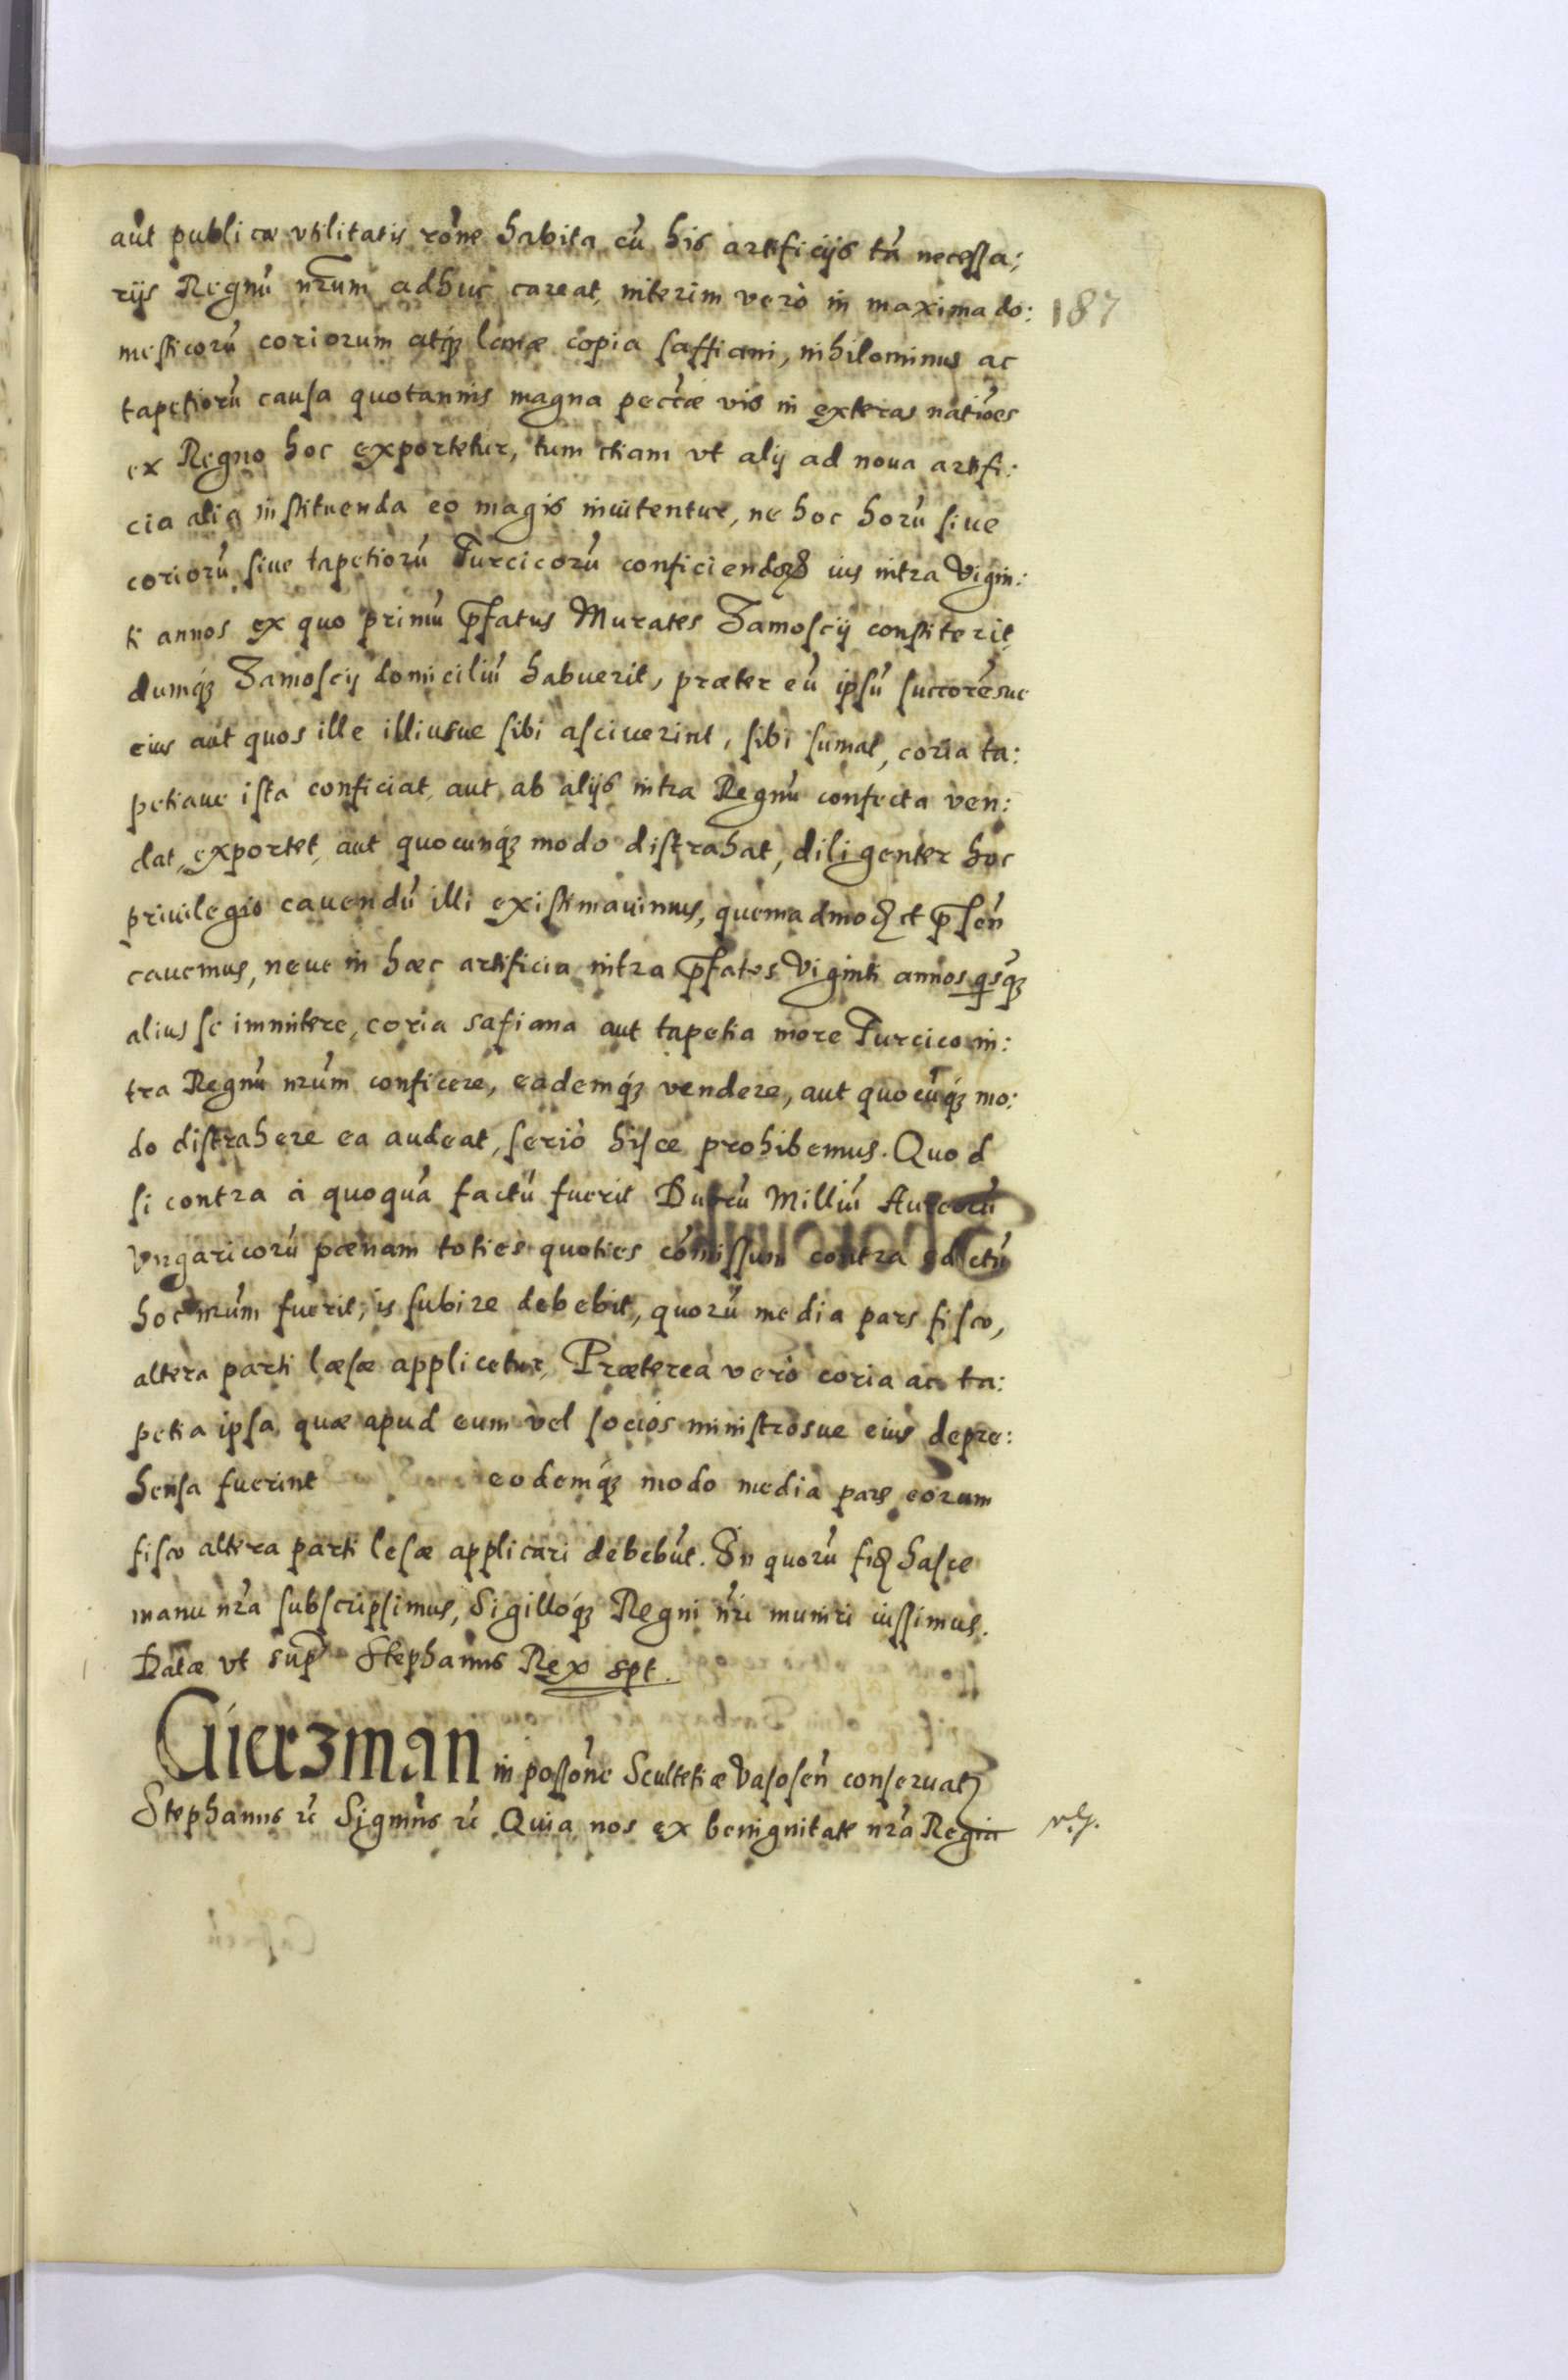 aut publicæ vtilitatis rõne habita cũ his artificijs tã necessa:
rijs Regnũ nr̃um adhuc careat, interim verò in maxima do:
187
mesticorũ coriorum atq́ꝫ lanæ copia saffiani, nihilominus ac
tapetiorũ causa quotannis magna pec̃cæ vis in exteras natiões
ex Regno hoc exportetur, tum etiam vt alij ad noua artifi:
cia alia instituenda eo magis inuitentur, ne hoc horũ siue
coriorũ siue tapetiorũ Turcicorũ conficiendoꝝ ius intra Vigin:
ti annos ex quo primũ p̃fatus Murates Zamoscij constiterit,
dumq́ꝫ Zamoscij domiciliũ habuerit, præter eũ ipsũ succorẽsue
eius aut quos ille illiusue sibi asciuerint, sibi sumat, coria ta:
petiaue ista conficiat, aut ab alijs intra Regnũ confecta ven:
dat, exportet, aut quocunq́ꝫ modo distrahat, diligenter hoc
priuilegio cauendũ illi existimauimus, quemadmoꝺ et p̃sen̄
cauemus, neue in hæc artificia intra p̃fatos Viginti annos qsq́ꝫ
alius se immittere, coria safiana aut tapetia more Turcico in:
tra Regnũ nr̃um conficere, eademq́ꝫ vendere, aut quocũq́ꝫ mo:
do distrahere ea audeat, seriò hisce prohibemus. Quod
si contra à quoquã factũ fuerit Duũ Milliũ Aureorũ
Vngaricorũ pœnam toties quoties cõmissum contra edictũ
hoc nr̃um fuerit, is subire debebit, quorũ media pars fisco,
altera parti læsæ applicetur, Præterea verò coria ac ta:
petia ipsa, quæ apud eum vel socios ministrosue eius depre:
hensa fuerint eodemq́ꝫ modo media pars eorum
fisco altera parti lesæ applicari debebũt. In quorũ fiꝺ hasce
manu nr̃a subscripsimus, Sigilloq́ꝫ Regni nr̃i muniri iussimus.
Datæ vt sup̃ Stephanus Rex spt.
Gierzman in possõne Scultetiæ Vasosen̄ conseruatꝫ
Stephanus rc̃ Sigmũs rc̃ Quia nos ex benignitate nr̃a Regia